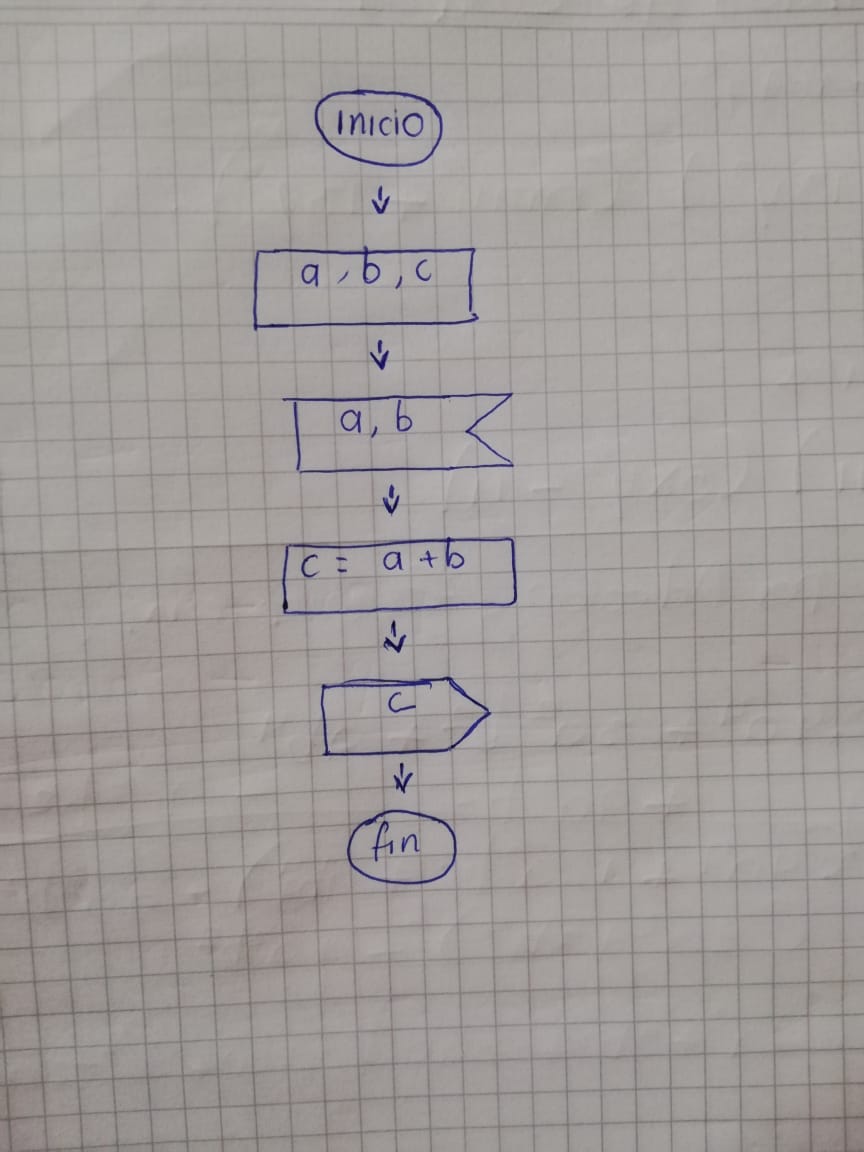 Inicio
a, b, c
a, b
c = a + b
c
fin